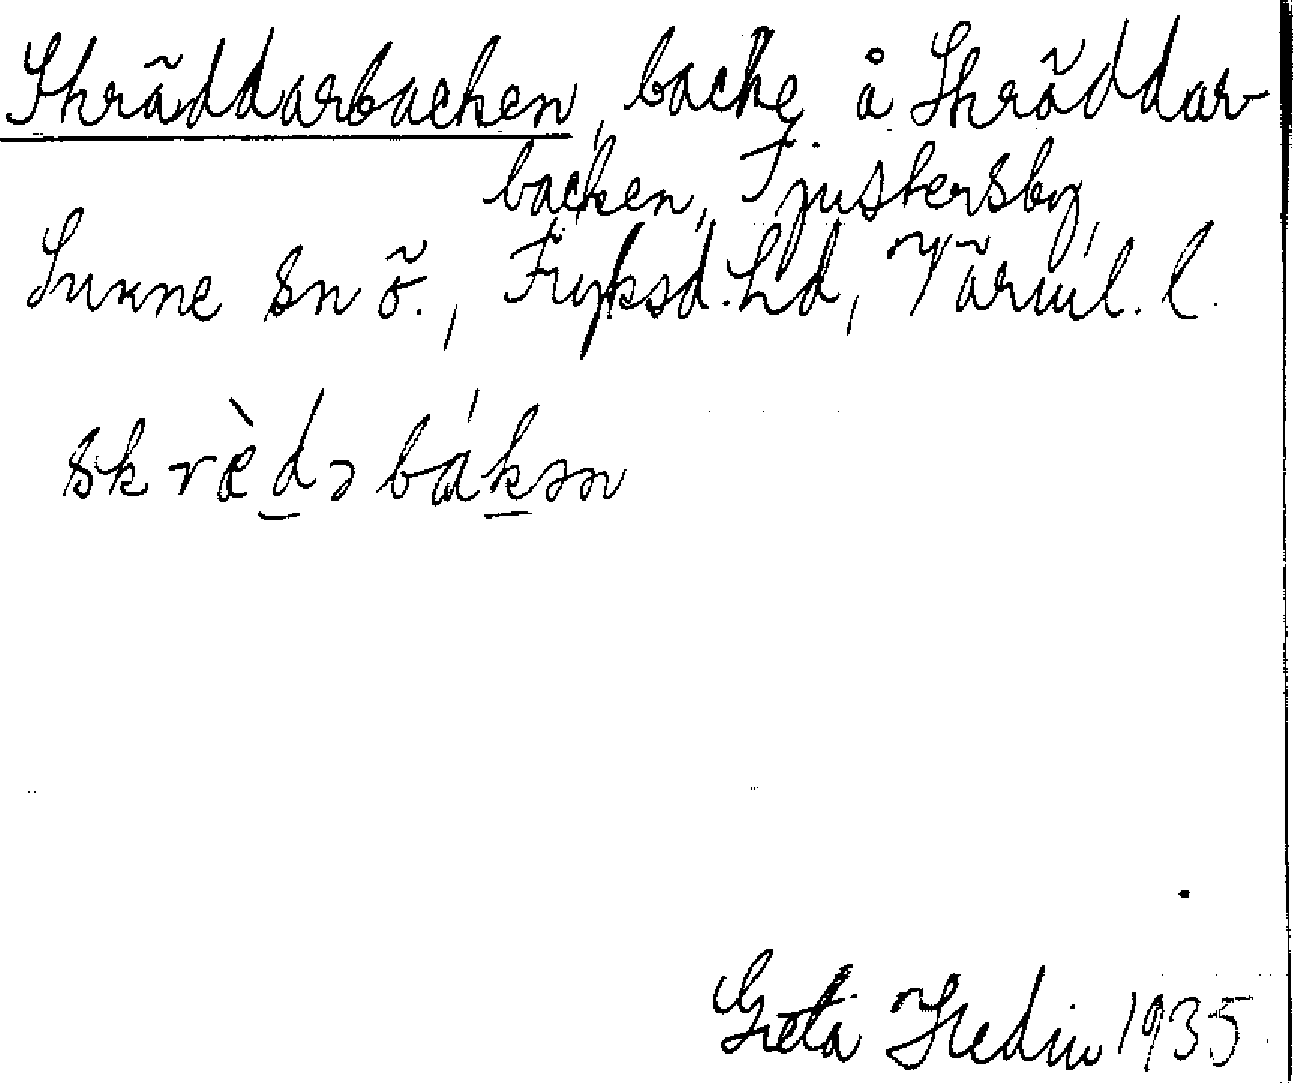 Skräddarbacken, backe å Skräddar-
backen, Fjustersby,
Sunne sn ö., Fryksd. hd, Värml. l.
skræ̀dəbákən
Greta Hedin 1935.